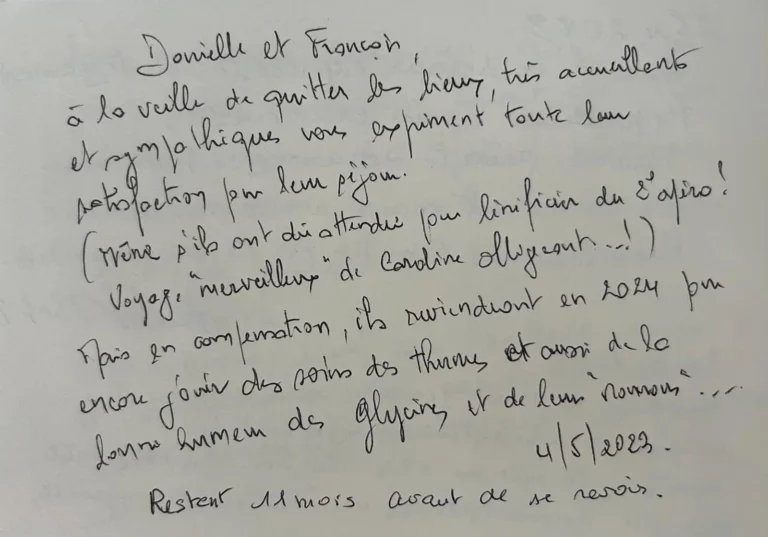 Danielle et François,
à la veille de quitter les lieux, très accueillants
et sympathiques vous expriment toute leur
satisfaction pour leur séjour.
(Même s'ils ont dû attendre pour bénéficier du 2e apéro!
Voyage "merveilleux" de Caroline obligeant...!)
Mais en compensation, ils reviendront en 2024 pour
encore jouir des soins des thermes et aussi de la
bonne humeur des glycines et de leur "nounous"...
4/5/2023.
Restent 11 mois avant de se revoir.